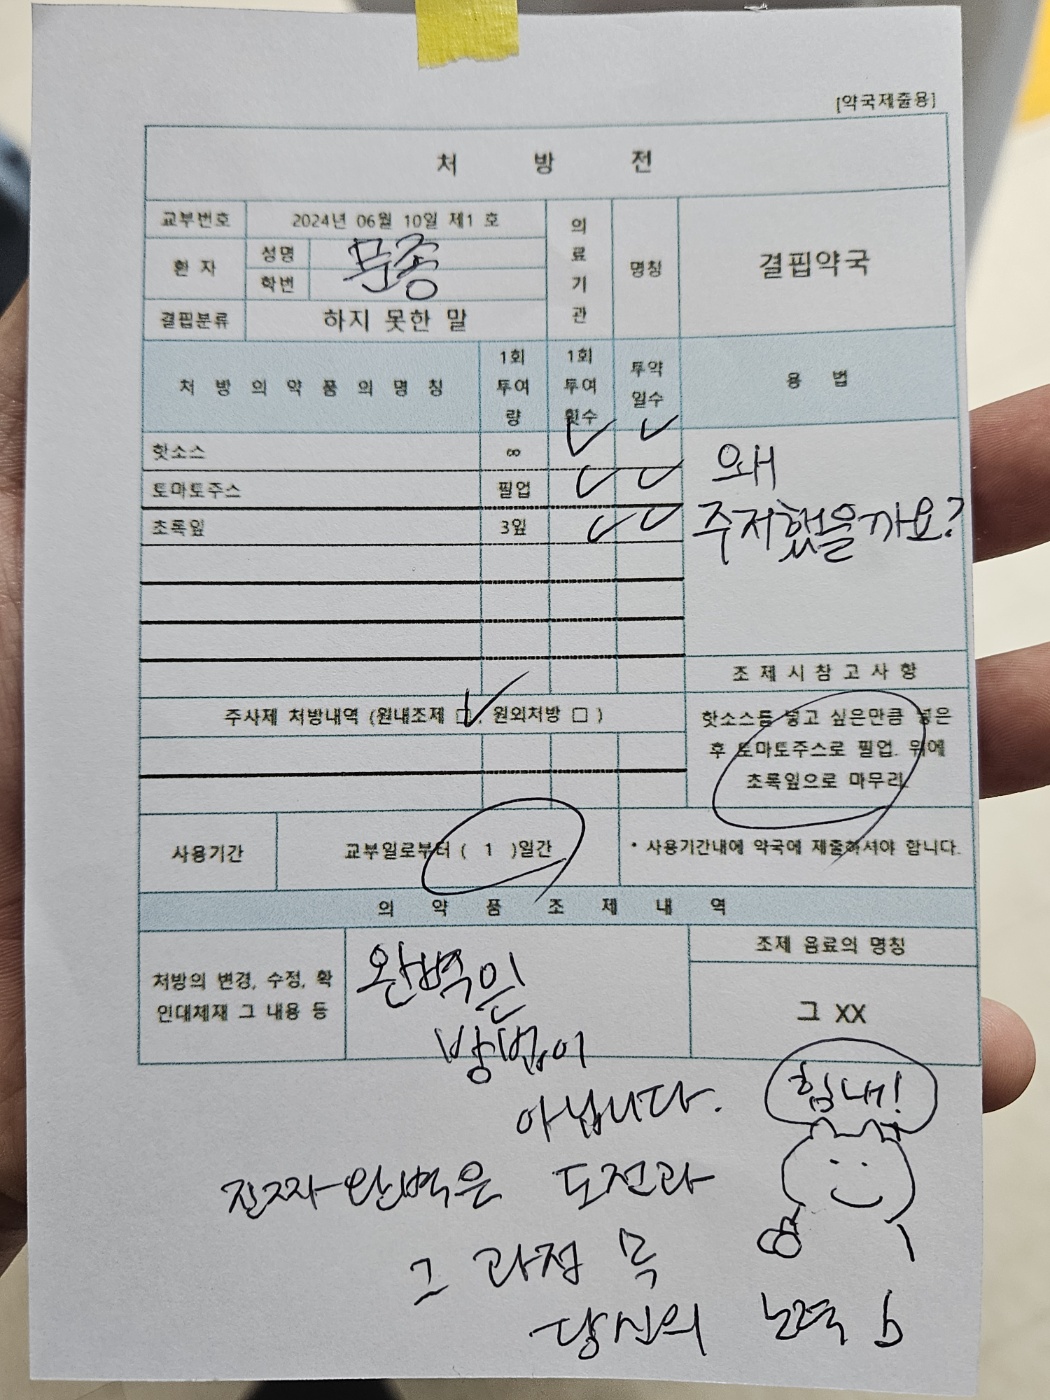 [약국제출용]
처 방 전
교부번호 2024년 06월 10일 제1 호
환 자 성명 문종
학번
의료기관 명칭 결핍약국
결핍분류 하지 못한 말
처 방 의 약 품 의 명 칭 1회 투여량 1회 투여 횟수 투약 일수 용 법
핫소스 ∞ ✓ ✓
토마토주스 필업 ✓ ✓
초록잎 3잎 ✓ ✓
왜
주저했을까요?
조 제 시 참 고 사 항
주사제 처방내역 (원내조제 ☑, 원외처방 □ )
핫소스를 넣고 싶은만큼 넣은
후 토마토주스로 필업. 위에
초록잎으로 마무리.
사용기간 교부일로부터 ( 1 )일간 • 사용기간내에 약국에 제출하셔야 합니다.
의 약 품 조 제 내 역
처방의 변경, 수정, 확
인대체재 그 내용 등
조제 음료의 명칭
그 XX
완벽은
방법이
아닙니다.
힘내!
진짜 완벽은 도전과
그 과정 목
당신의 노력